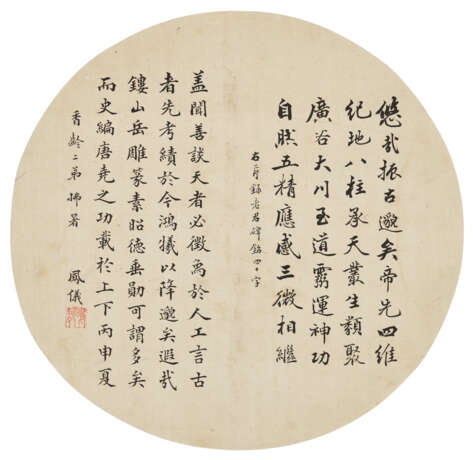 悠哉振古邈矣帝先四維
紀地八柱承天叢生類聚
廣谷大川至道靈運神功
自然五精應感三微相繼
右節錄老君碑銘四十字
蓋聞善談天者必徵象於人工言古
者先考績於今鴻犧以降邈矣遐哉
鏤山岳雕篆素昭德垂勛可謂多矣
而史編唐堯之功載於上下丙申夏
香齡二弟
鳳儀